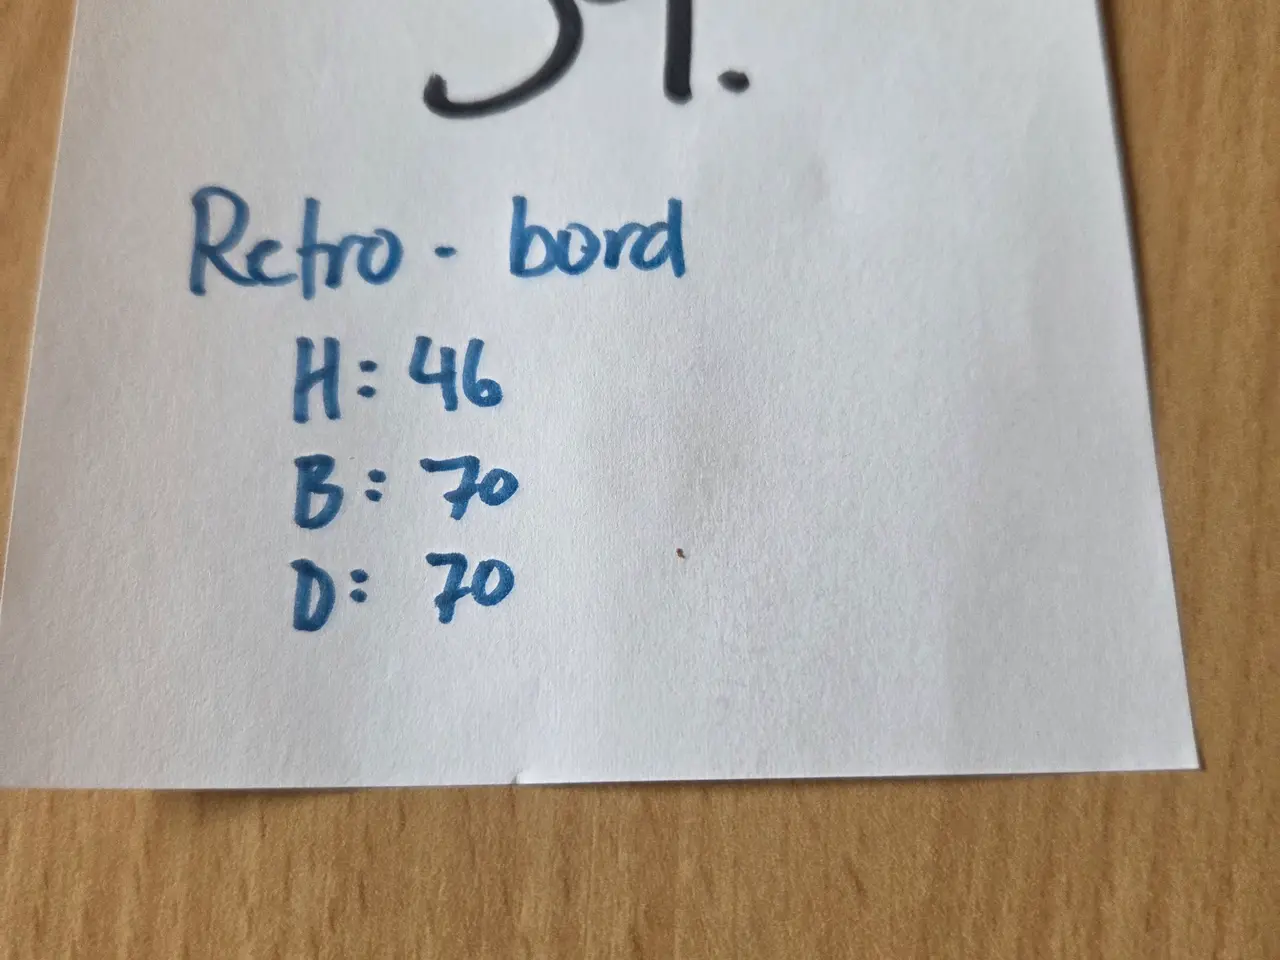 Retro - bord
H: 46
B: 70
D: 70